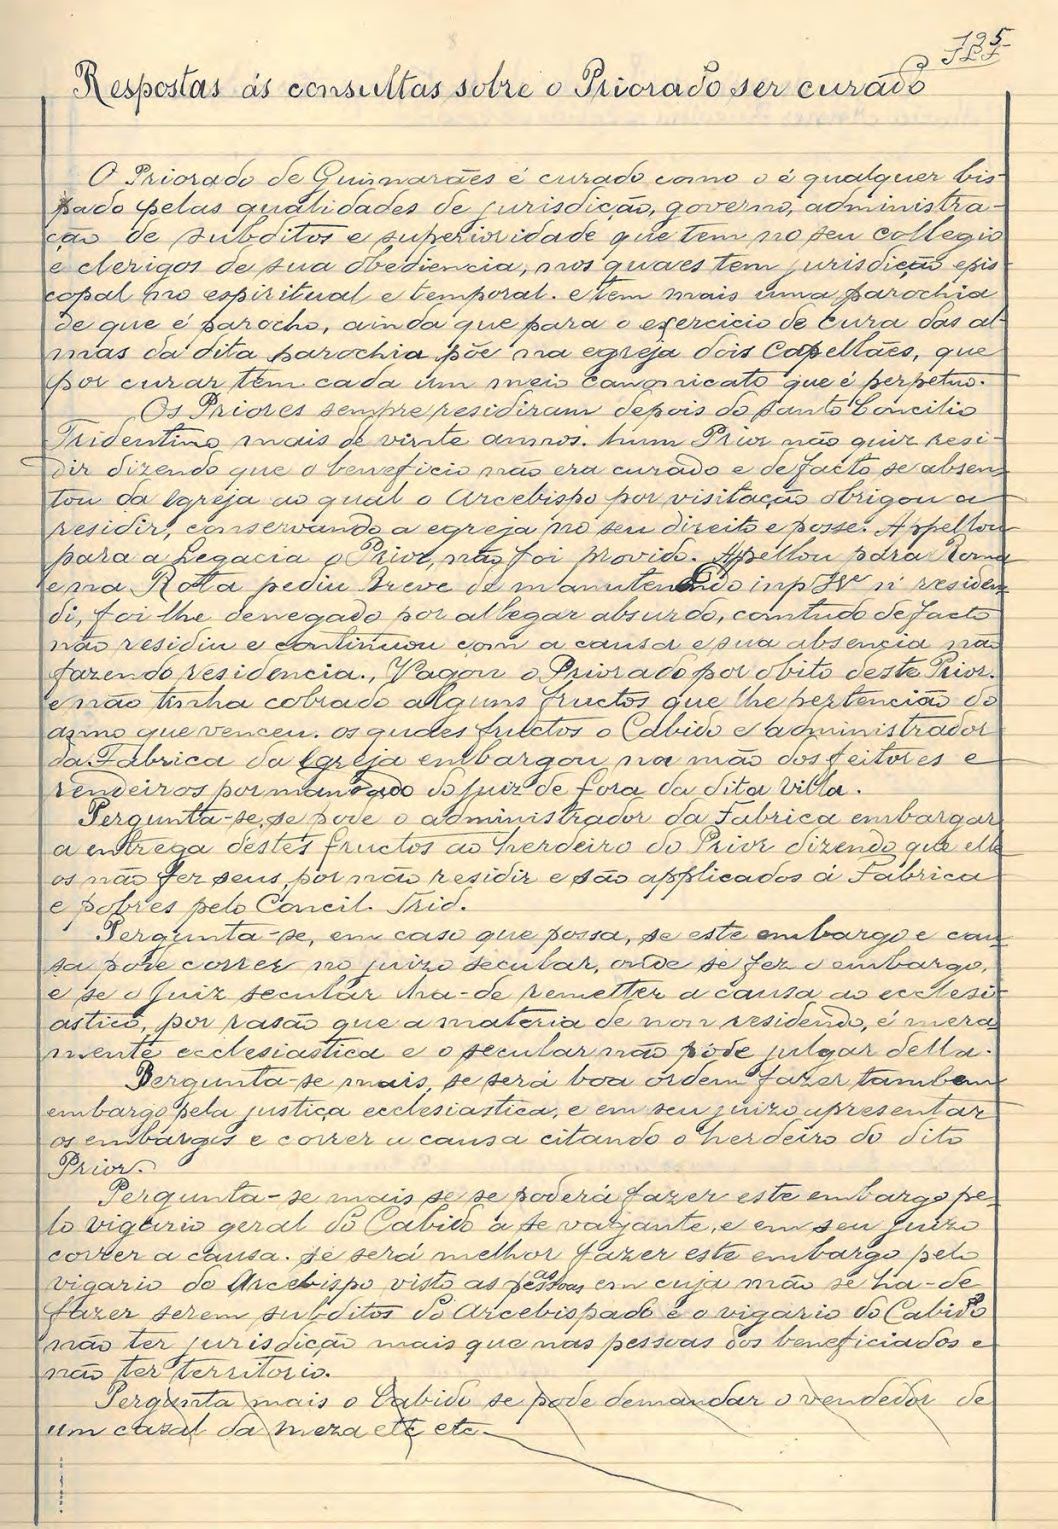 125
Respostas ás consultas sobre o Priorado ser curado
O Priorado de Guimarães é curado como o é qualquer bis-
pado pelas qualidades de jurisdicção, governo, administra-
ção de subditos e superioridade que tem no seu collegio
e clerigos de sua obediencia, nos quaes tem jurisdicção epis-
copal no espiritual e temporal. e tem mais uma parochia
de que é parocho, ainda que para o exercicio de cura das al-
mas da dita parochia põe na egreja dois Capellães, que
por curar têm cada um meio canonicato que é perpetuo.
Os Priores sempre residiram depois do Santo Concilio
Tridentino mais de vinte annos. hum Prior não quiz resi-
dir dizendo que o beneficio não era curado e de facto se absen-
tou da Igreja ao qual o Arcebispo por visitação obrigou a
residir, conservando a egreja no seu direito e posse. Appellou
para a Legacia o Prior, não foi provido. Appellou para Roma
e na Rota pediu Breve de manutenendo in residen-
di, foi lhe denegado por allegar absurdo, comtudo de facto
não residiu e continuou com a causa e sua absencia não
fazendo residencia., Vagou o Priorado por obito deste Prior.
e não tinha cobrado alguns fructos que lhe pertencião do
anno que venceu. os quaes fructos o Cabido e administrador
da Fabrica da Igreja embargou na mão dos feitores e
rendeiros por mandado do Juiz de fora da dita Villa.
Pergunta-se, se pode o administrador da Fabrica embargar
a entrega destes fructos ao herdeiro do Prior dizendo que elle
os não fez seus, por não residir e são applicados á Fabrica
e pobres pelo Concil. Trid.
Pergunta-se, em caso que possa, se este embargo e cau-
sa pode correr no juizo secular, onde se fez o embargo,
e se o Juiz secular ha-de remetter a causa ao ecclesi-
astico, por rasão que a materia de non residendo, é mera-
mente ecclesiastica e o secular não póde julgar della.
Pergunta-se mais, se será boa ordem fazer tambem
embargo pela justiça ecclesiastica, e em seu juizo apresentar
os embargos e correr a causa citando o herdeiro do dito
Prior.
Pergunta-se mais se se poderá fazer este embargo pe-
lo vigario geral do Cabido a se vagante, e em seu juizo
correr a causa. se será melhor fazer este embargo pelo
vigario do Arcebispo visto as pessoas em cuja mão se ha-de
fazer serem subditos do Arcebispado e o vigario do Cabido
não ter jurisdicção mais que nas pessoas dos beneficiados e
não ter territorio.
Pergunta mais o Cabido se pode demandar o vendedor de
um casal da meza etc etc.